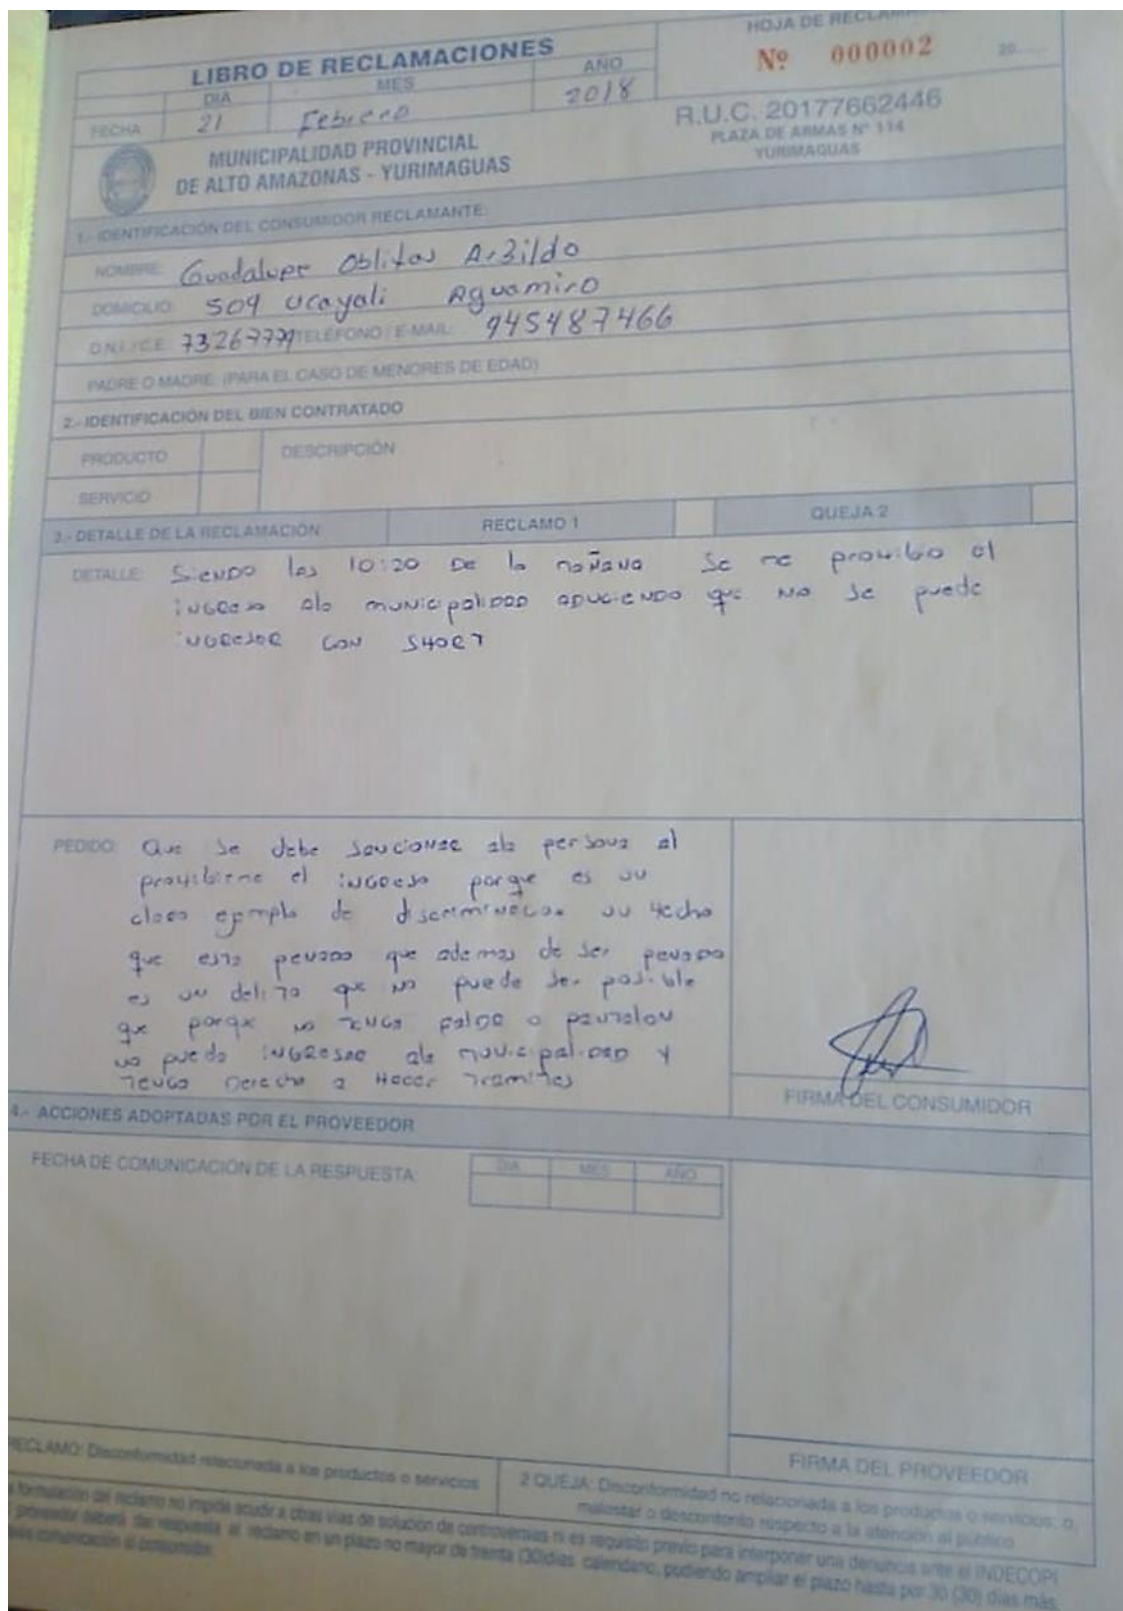 HOJA DE RECLAM
LIBRO DE RECLAMACIONES
Nº 000002
20
DIA MES AÑO
FECHA 21 Febrero 2018
R.U.C. 20177662446
PLAZA DE ARMAS Nº 114
YURIMAGUAS
MUNICIPALIDAD PROVINCIAL
DE ALTO AMAZONAS - YURIMAGUAS
1.- IDENTIFICACIÓN DEL CONSUMIDOR RECLAMANTE:
NOMBRE: Guadalupe Oblitas Arbildo
DOMICILIO: 509 Ucayali Aguamiro
D.N.I. / C.E. TELÉFONO / E-MAIL: 945487466
PADRE O MADRE: (PARA EL CASO DE MENORES DE EDAD)
2.- IDENTIFICACIÓN DEL BIEN CONTRATADO
PRODUCTO DESCRIPCIÓN
SERVICIO
3.- DETALLE DE LA RECLAMACIÓN RECLAMO 1 QUEJA 2
DETALLE: Siendo las 10:20 de la mañana se me prohibio el
ingreso ala municipalidad aduciendo que no se puede
ingresar con short
PEDIDO: Que se debe sancionar ala persona al
prohibirme el ingreso porque es un
claro ejemplo de discriminacion un hecho
que esta penado que ademas de ser penado
es un delito que no puede ser posible
que porque no tenga falda o pantalon
no pueda ingresar ala municipalidad y
tengo derecho a Hacer Tramites
FIRMA DEL CONSUMIDOR
4.- ACCIONES ADOPTADAS POR EL PROVEEDOR
FECHA DE COMUNICACIÓN DE LA RESPUESTA: DIA MES AÑO
FIRMA DEL PROVEEDOR
RECLAMO: Disconformidad relacionada a los productos o servicios
2 QUEJA: Disconformidad no relacionada a los productos o servicios; o,
malestar o descontento respecto a la atención al público
formulación del reclamo no impide acudir a otras vías de solución de controversias ni es requisito previo para interponer una denuncia ante el INDECOPI
proveedor deberá dar respuesta al reclamo en un plazo no mayor de treinta (30)días calendario, pudiendo ampliar el plazo hasta por 30 (30) días más,
comunicación al consumidor.